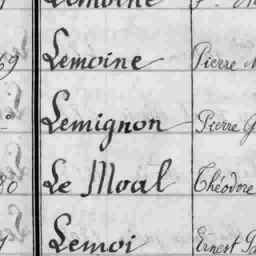 Lemoine
69 Lemoine Pierre
Lemignon Pierre
80 Le Moal Théodore
Lemoi Ernest